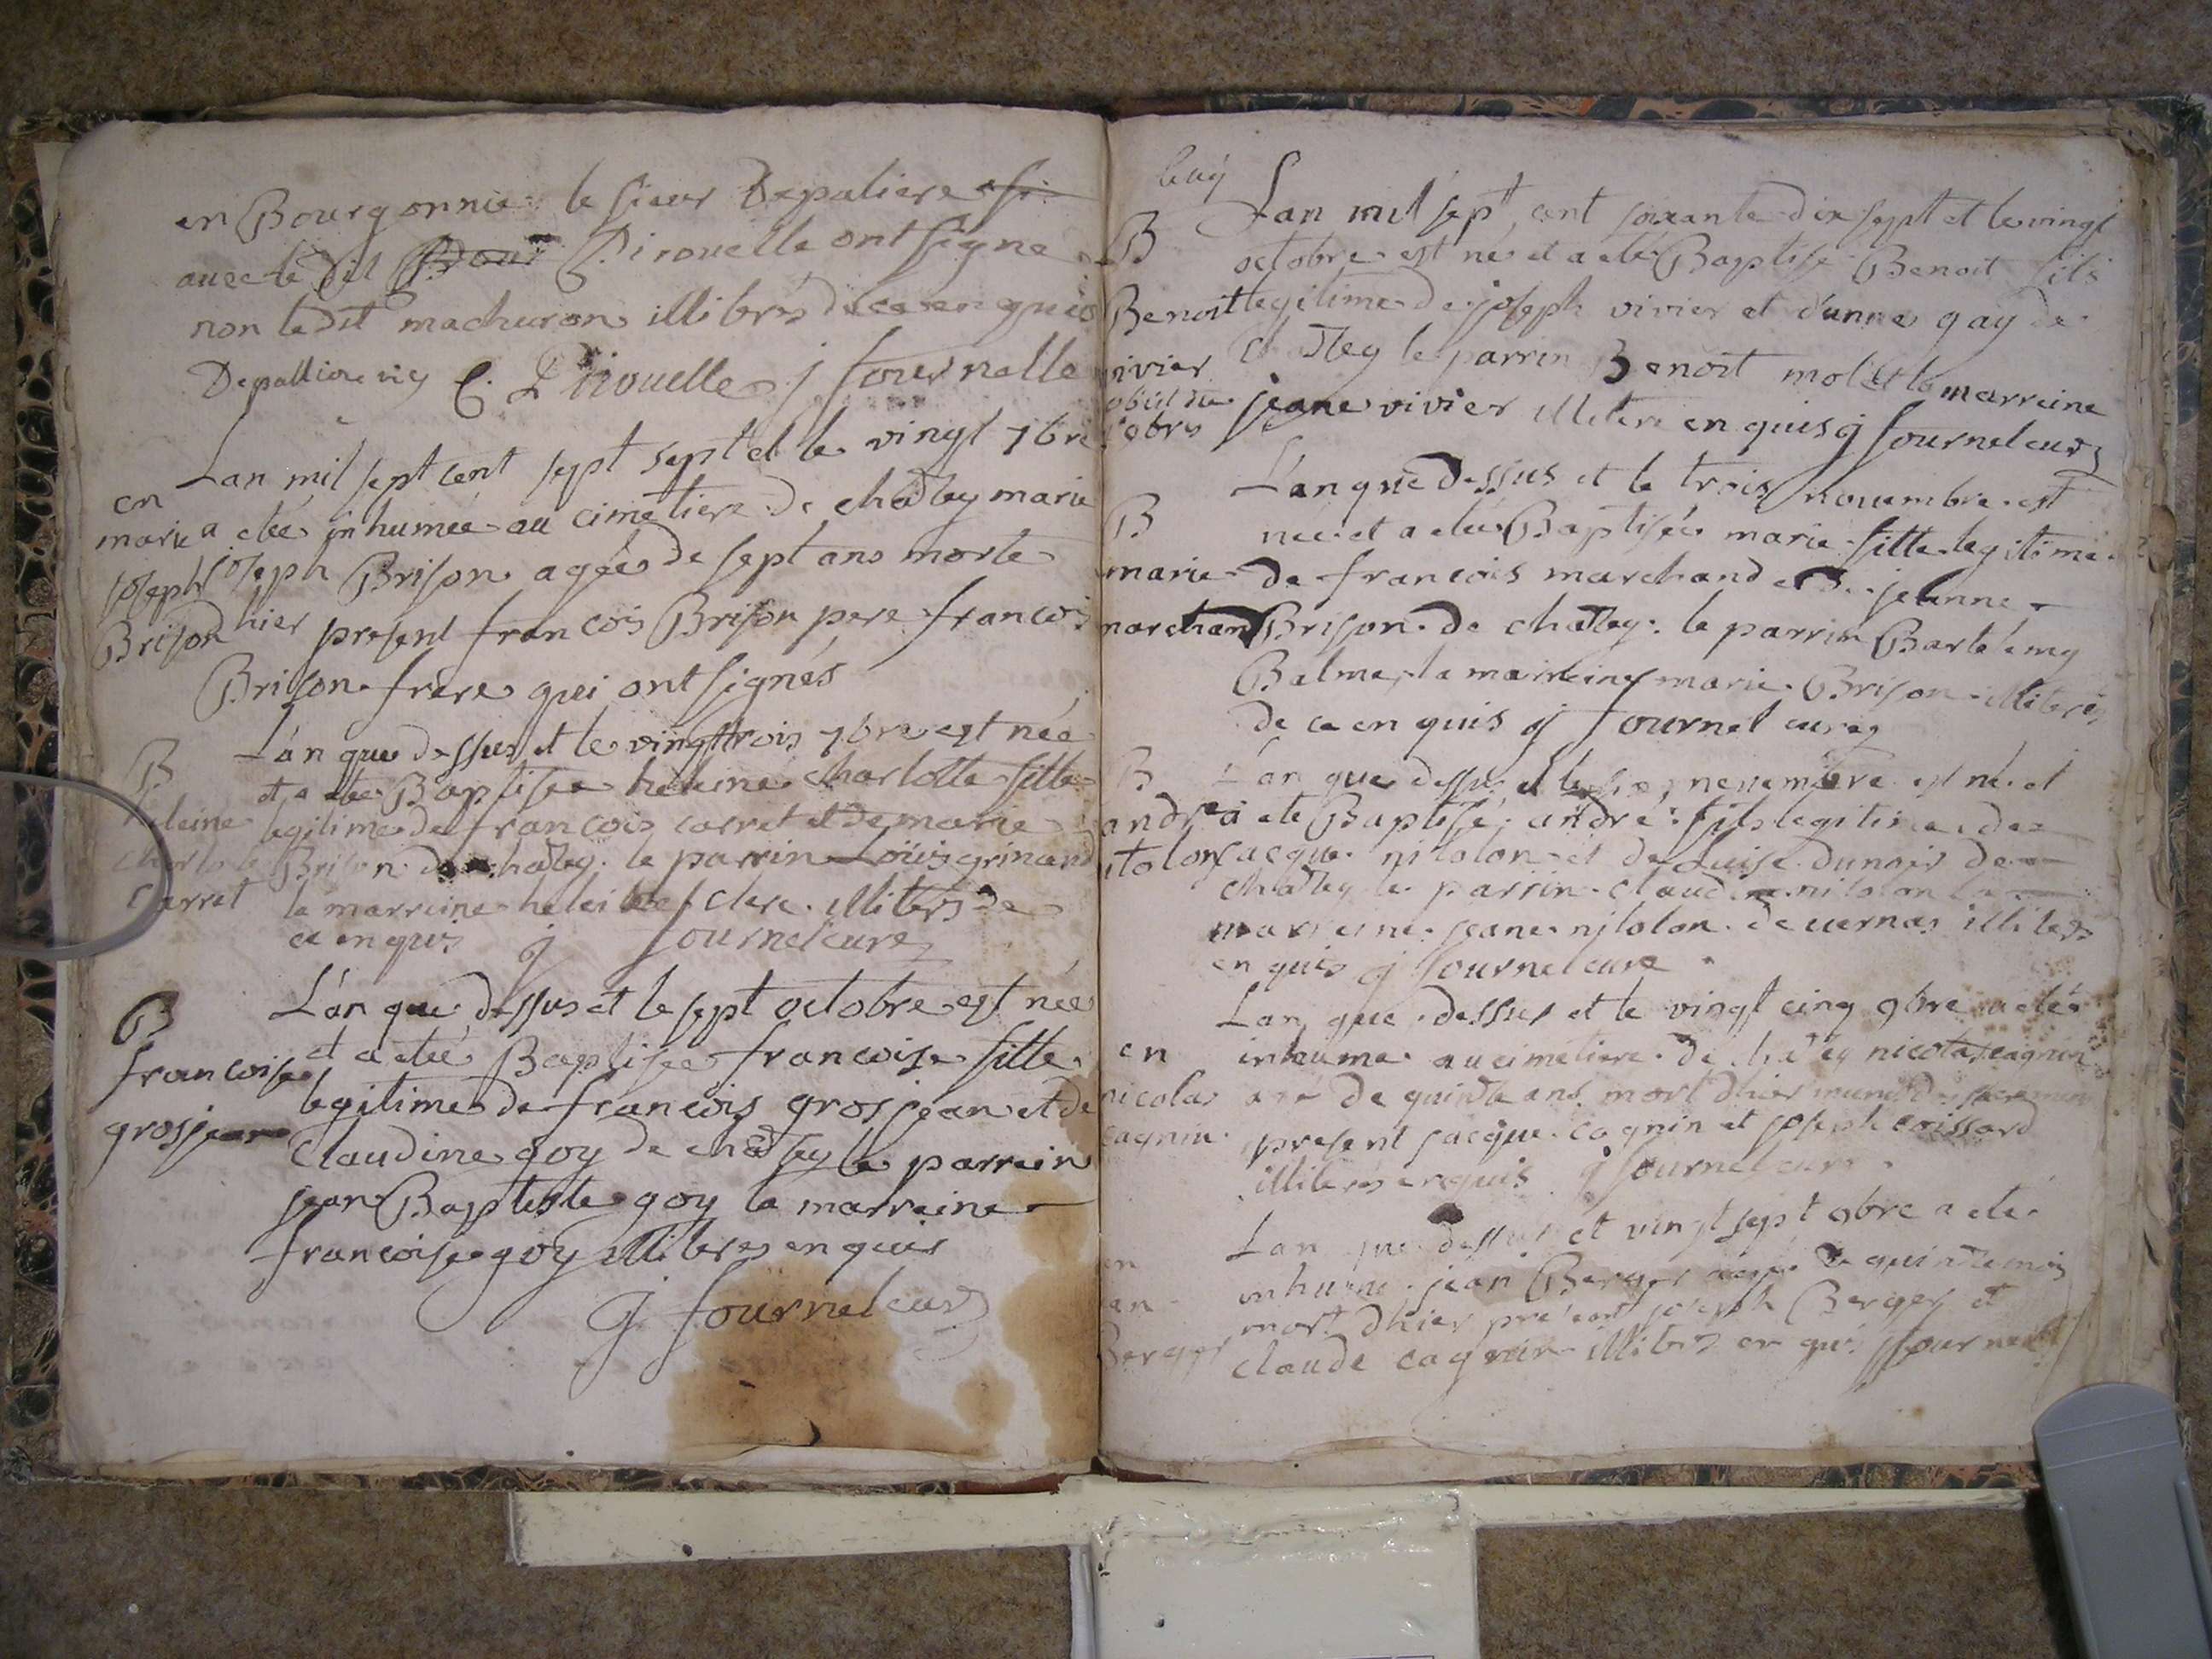 en Bourgonnie le sieur Depaliere
avec le dit Pirouelle ont signe
non le dit machuron illiterés de ce enquis
Depalliere vic C. Pirouelle j fournelle
Lan mil sept cent sept sept et le vingt 7bre
en
marie a eteé inhumée au cimetiere de chatley marie
joseph joseph Brison agée de sept ans morte
Brison hier present francois Brison pere francois
Brison frere qui ont signés
B L'an que dessus et le vingt trois 7bre est née
et a ete Baptisee heleine charlotte fille
heleine legitime de francois carret et de marie
charlotte Brison de chatley le parrin Loüis grimand
Carret la marreine heleine clere illiterés de
ce enquis j fournel curé
B L'an que dessus et le sept octobre est née
francoise et a eteé Baptisee francoise fille
legitime de francois grosjean et de
grosjean claudine goy de chatley le parrein
jean Baptiste goy la marreine
francoise goy illiteres enquis
j fournel curé
B Lan mil sept cent soixante dix sept et le vingt
octobre est né et a eté Baptisé Benoit fils
Benoit legitime de joseph vivier et d'anne gay de
vivier chatley le parrin Benoit molet la marreine
8obre jeane vivier illitere enquis j fournel curé
B L'an que dessus et le trois novembre est
nee et a eteé Baptiseé marie fille legitime
marie de francois marchand et de jeanne
marchand Brison de chatley le parrin Bartelemy
Balme la marreine marie Brison illiterés
de ce enquis j fournel curé
B L'an que dessus et le novembre est né et
andre a eté Baptisé andré fils legitime de
nitolon jacque nitolon et de Luise dunoir de
chatley le parrin claude nitolon la
marreine jeane nitolon de vernas illiteres
enquis j fournel curé
Lan que dessus et le vingt cinq 9bre a eté
en inhume au cimetiere de chatley nicolas cagnin
nicolas agé de quinze ans mort dhier muni des sacremens
cagnin present jacque cagnin et joseph coissard
illiterés enquis j fournel curé
Lan que dessus et vingt sept 9bre a eté
en inhume jean Berger agé de quinze mois
jean mort dhier present joseph Berger et
Berger claude cagnin illiterés enquis j fournel